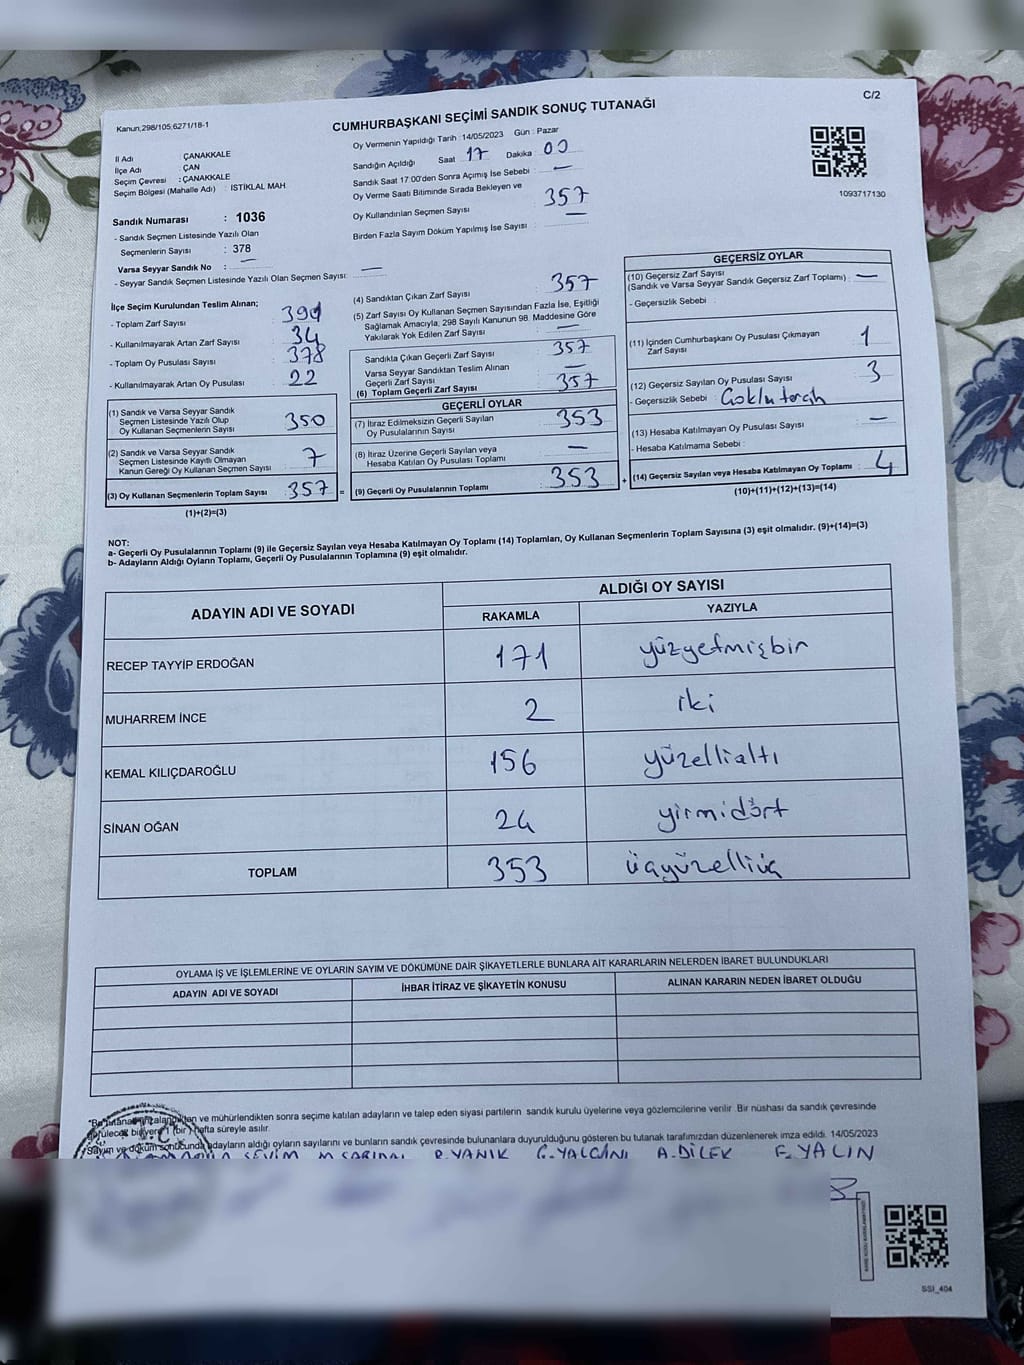 C/2
Kanun;298/105;6271/18-1
CUMHURBAŞKANI SEÇİMİ SANDIK SONUÇ TUTANAĞI
İl Adı ÇANAKKALE
İlçe Adı ÇAN
Seçim Çevresi : ÇANAKKALE
Seçim Bölgesi (Mahalle Adı) : İSTİKLAL MAH.
Sandık Numarası : 1036
- Sandık Seçmen Listesinde Yazılı Olan
Seçmenlerin Sayısı : 378
Varsa Seyyar Sandık No : —
- Seyyar Sandık Seçmen Listesinde Yazılı Olan Seçmen Sayısı: —
Oy Vermenin Yapıldığı Tarih : 14/05/2023 Gün : Pazar
Sandığın Açıldığı Saat 17 Dakika : 00
Sandık Saat 17:00'den Sonra Açımış İse Sebebi : —
Oy Verme Saati Bitiminde Sırada Bekleyen ve
Oy Kullandırılan Seçmen Sayısı : 357
Birden Fazla Sayım Döküm Yapılmış İse Sayısı : —
1093717130
İlçe Seçim Kurulundan Teslim Alınan;
- Toplam Zarf Sayısı : 391
- Kullanılmayarak Artan Zarf Sayısı : 34
- Toplam Oy Pusulası Sayısı : 378
- Kullanılmayarak Artan Oy Pusulası : 22
(1) Sandık ve Varsa Seyyar Sandık
Seçmen Listesinde Yazılı Olup
Oy Kullanan Seçmenlerin Sayısı : 350
(2) Sandık ve Varsa Seyyar Sandık
Seçmen Listesinde Kayıtlı Olmayan
Kanun Gereği Oy Kullanan Seçmen Sayısı : 7
(3) Oy Kullanan Seçmenlerin Toplam Sayısı : 357 =
(1)+(2)=(3)
(4) Sandıktan Çıkan Zarf Sayısı : 357
(5) Zarf Sayısı Oy Kullanan Seçmen Sayısından Fazla İse, Eşitliği
Sağlamak Amacıyla, 298 Sayılı Kanunun 98. Maddesine Göre
Yakılarak Yok Edilen Zarf Sayısı : —
Sandıkta Çıkan Geçerli Zarf Sayısı : 357
Varsa Seyyar Sandıktan Teslim Alınan
Geçerli Zarf Sayısı : —
(6) Toplam Geçerli Zarf Sayısı : 357
GEÇERLİ OYLAR
(7) İtiraz Edilmeksizin Geçerli Sayılan
Oy Pusulalarının Sayısı : 353
(8) İtiraz Üzerine Geçerli Sayılan veya
Hesaba Katılan Oy Pusulası Toplamı : —
(9) Geçerli Oy Pusulalarının Toplamı : 353 +
GEÇERSİZ OYLAR
(10) Geçersiz Zarf Sayısı
(Sandık ve Varsa Seyyar Sandık Geçersiz Zarf Toplamı) : —
- Geçersizlik Sebebi :
(11) İçinden Cumhurbaşkanı Oy Pusulası Çıkmayan
Zarf Sayısı : 1
(12) Geçersiz Sayılan Oy Pusulası Sayısı : 3
- Geçersizlik Sebebi :
(13) Hesaba Katılmayan Oy Pusulası Sayısı : —
- Hesaba Katılmama Sebebi :
(14) Geçersiz Sayılan veya Hesaba Katılmayan Oy Toplamı : 4
(10)+(11)+(12)+(13)=(14)
NOT:
a- Geçerli Oy Pusulalarının Toplamı (9) ile Geçersiz Sayılan veya Hesaba Katılmayan Oy Toplamı (14) Toplamları, Oy Kullanan Seçmenlerin Toplam Sayısına (3) eşit olmalıdır. (9)+(14)=(3)
b- Adayların Aldığı Oyların Toplamı, Geçerli Oy Pusulalarının Toplamına (9) eşit olmalıdır.
ADAYIN ADI VE SOYADI ALDIĞI OY SAYISI
RAKAMLA YAZIYLA
RECEP TAYYİP ERDOĞAN 171 yüzyetmişbir
MUHARREM İNCE 2 iki
KEMAL KILIÇDAROĞLU 156 yüzellialtı
SİNAN OĞAN 24 yirmidört
TOPLAM 353 üçyüzelliüç
OYLAMA İŞ VE İŞLEMLERİNE VE OYLARIN SAYIM VE DÖKÜMÜNE DAİR ŞİKAYETLERLE BUNLARA AİT KARARLARIN NELERDEN İBARET BULUNDUKLARI
ADAYIN ADI VE SOYADI İHBAR İTİRAZ VE ŞİKAYETİN KONUSU ALINAN KARARIN NEDEN İBARET OLDUĞU
ve mühürlendikten sonra seçime katılan adayların ve talep eden siyasi partilerin sandık kurulu üyelerine veya gözlemcilerine verilir. Bir nüshası da sandık çevresinde
görülecek bir yere 1 (bir) hafta süreyle asılır.
Sayım ve döküm sonucunda adayların aldığı oyların sayılarını ve bunların sandık çevresinde bulunanlara duyurulduğunu gösteren bu tutanak tarafımızdan düzenlenerek imza edildi. 14/05/2023
SEVİM R.YANIK G.YALÇIN A.DİLEK F.YALIN
SSI_404